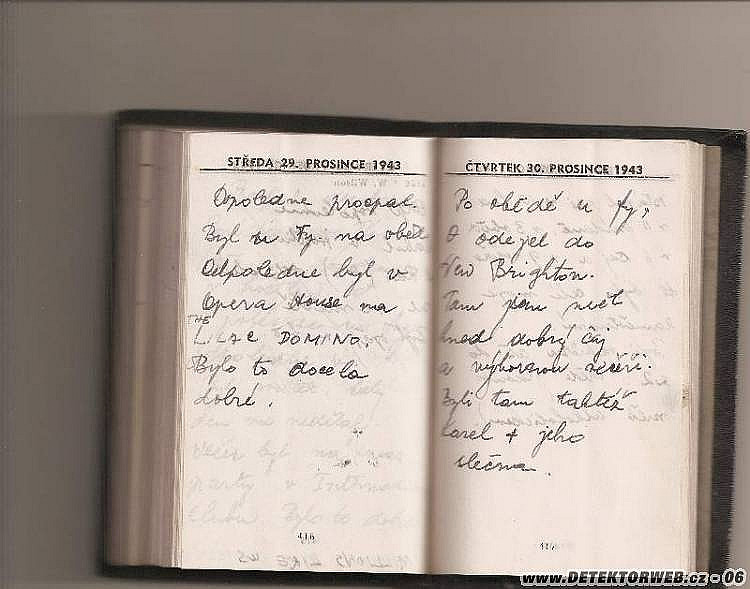 STŘEDA 29. PROSINCE 1943
dopoledne prospal.
Byl u Fy na oběd
Odpoledne byl v
Opera House na
THE
LILAC DOMINO.
Bylo to docela
dobré.
416
ČTVRTEK 30. PROSINCE 1943
Po obědě u fy,
odejel do
New Brighton.
Tam jsem měl
hned dobrý čaj
a výbornou večeři.
Byli tam taktéž
Karel + jeho
slečna.
417
www.DETEKTORWEB.cz -06